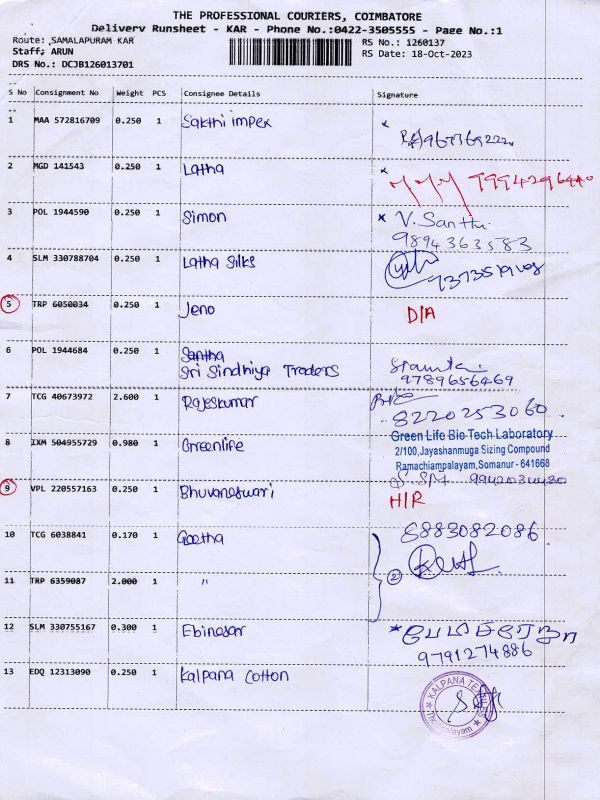 THE PROFESSIONAL COURIERS, COIMBATORE
Delivery Runsheet - KAR - Phone No.:0422-3505555 - Page No.:1
Route: SAMALAPURAM KAR
Staff: ARUN
DRS No.: DCJB126013701
RS No.: 1260137
RS Date: 18-Oct-2023
S No Consignment No Weight PCS Consignee Details Signature
1 MAA 572816709 0.250 1 Sakthi impex
2 MGD 141543 0.250 1 Latha
3 POL 1944590 0.250 1 Simon V. Santhi
9894363583
4 SLM 330788704 0.250 1 Latha Silks
5 TRP 6050034 0.250 1 Jeno D/A
6 POL 1944684 0.250 1 Santha
Sri Sindhiya Traders
9789656469
7 TCG 40673972 2.600 1 Rajeskumar
8220253060
8 IXM 504955729 0.980 1 Greenlife
Green Life Bio Tech Laboratory
2/100,Jayashanmuga Sizing Compound
Ramachiampalayam,Somanur - 641668
9 VPL 220557163 0.250 1 Bhuvaneswari H/R
10 TCG 6038841 0.170 1 Geetha 8883082086
11 TRP 6359087 2.000 1 " 2
12 SLM 330755167 0.300 1 Ebinesar
9791274886
13 EDQ 12313090 0.250 1 Kalpana Cotton